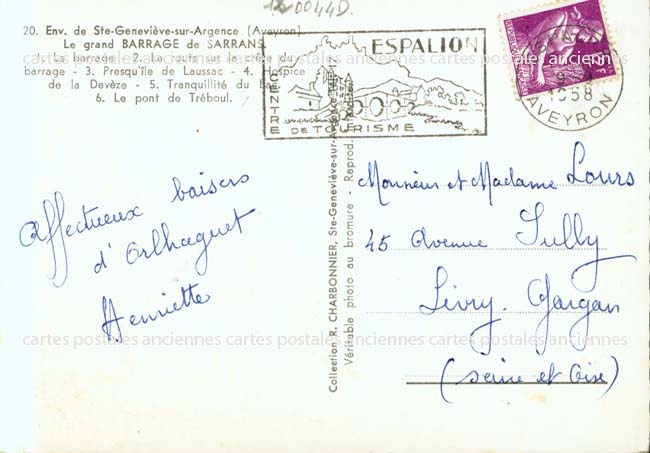 12 0044D.
20. Env. de Ste-Geneviève-sur-Argence (Aveyron)
Le grand BARRAGE de SARRANS
1. Le barrage - 2. La route sur la crête du
barrage - 3. Presqu'île de Laussac - 4. L'hospice
de la Devèze - 5. Tranquilité du Lac
6. Le pont de Tréboul.
ESPALION
CENTRE DE TOURISME
1958
AVEYRON
Affectueux baisers
d'Orlhaguet
Henriette
Collection R. CHARBONNIER, Ste-Geneviève-sur-Argence
Véritable photo au bromure - Reprod.
Monsieur et Madame Lours
45 Avenue Sully
Livry. Gargan
(Seine et Oise)
cartes postales anciennes cartes postales anciennes cartes postales anciennes
cartes postales anciennes cartes postales anciennes cartes postales anciennes